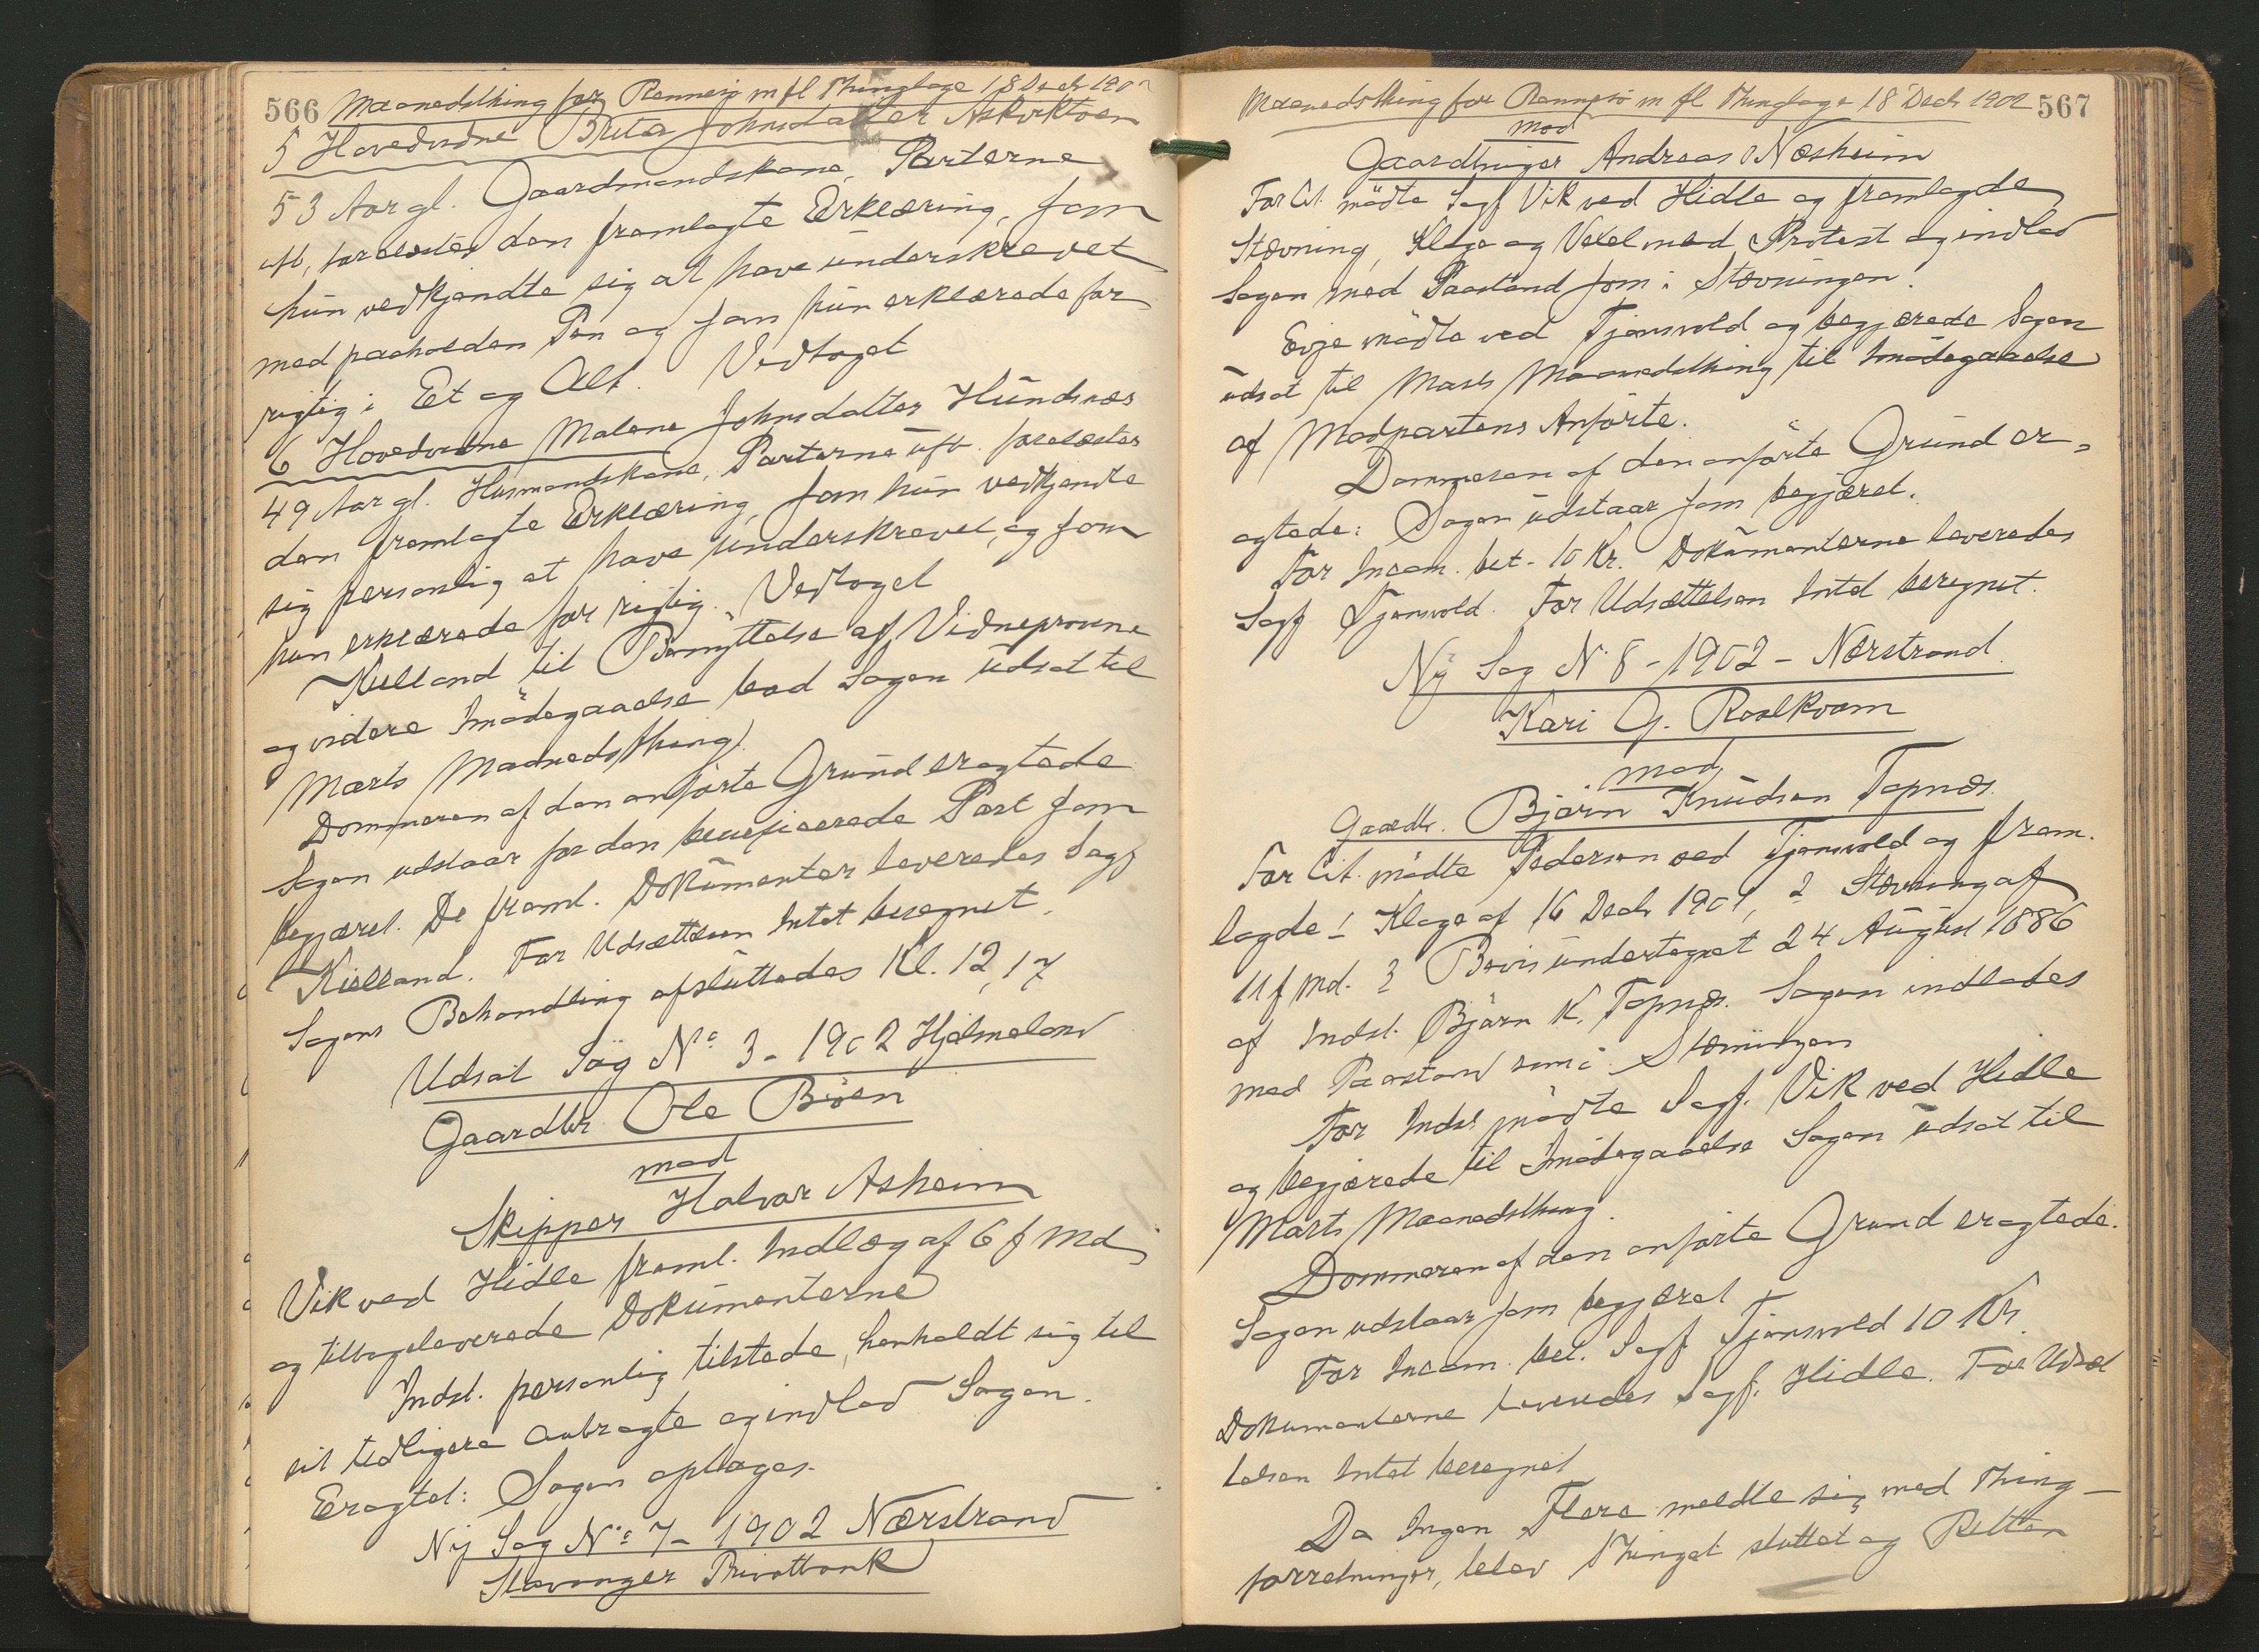 566 Maanedsthing for Rennesø m fl Thinglage 18 Decb 1902
5 Hovedvidne Brita Johnsdatter Askviktoen
53 Aar gl. Gaardmandskone, Parterne
uft, forelæstes den fremlagte Erklæring, som
hun vedkjendte sig at have underskrevet
med paaholden Pen og som hun erklærede for
rigtig i Et og Alt. Vedtaget
6 Hovedvidne Malene Johnsdatter Hundsnes
49 Aar gl. Husmandskone, Parterne uft. forelæstes
den fremlagte Erklæring, som hun vedkjendte
sig personlig at have underskrevet, og som
hun erklærede for rigtig. Vedtaget
Kielland til Benyttelse af Vidneprovene
og videre Imødegaaelse bad Sagen udsat til
Marts Maanedsthing.
Dommeren af den anførte Grund eragtede
Sagen udstaar for den beneficerede Part som
begjæret. De freml. Dokumenter leveredes Sagf
Kielland. For Udsættelsen Intet beregnet.
Sagens Behandling afsluttedes Kl. 12,17
Udsat Sag No 3 - 1902 Hjelmeland
Gaardbr. Ole Bøen
mod
Skipper Halvor Asheim
Vik ved Hidle freml. Indlæg af 6 f Md
og tilbageleverede Dokumenterne
Indst. personlig tilstede, henholdt sig til
sit tidligere Anbragte og indlod Sagen.
Eragtet: Sagen optages.
Ny Sag No 7 - 1902 Nærstrand
Stavanger Privatbank
Maanedsthing for Rennesø m fl Thinglage 18 Decb 1902 567
mod
Gaardbruger Andreas O Næsheim
For Cit. mødte Sagf Vik ved Hidle og fremlagde
Stævning, Klage og Vexel med Protest og indlod
Sagen med Paastand som i Stævningen.
Evje mødte ved Tjensvold og begjærede Sagen
udsat til Marts Maanedsthing til Imødegaaelse
af Modpartens Anførte.
Dommeren af den anførte Grund er-
agtede: Sagen udstaar som begjæret.
For Incam. bet. 10 Kr. Dokumenterne leveredes
Sagf Tjensvold. For Udsættelsen Intet beregnet.
Ny Sag N 8 - 1902 - Nærstrand
Kari G. Roalkvam
mod
Gaardbr. Bjørn Knudsen Tøpnes.
For Cit. mødte Pedersen ved Tjensvold og frem-
lagde 1 Klage af 16 Decb 1901, 2 Stævning af
11 f Md. 3 Bevis undertegnet 24 August 1886
af Indst. Bjørn K. Tøpnes. Sagen indlodes
med Paastand som i Stævningen
For Indst mødte Sagf. Vik ved Hidle
og begjærede til Imødegaaelse Sagen udsat til
Marts Maanedsthing.
Dommeren af den anførte Grund eragtede.
Sagen udstaar som begjæret
For Incam. bet. Sagf. Tjensvold 10 Kr.
Dokumenterne leveredes Sagf. Hidle. For Udsæt
telsen Intet beregnet
Da Ingen Flere meldte sig med Thing-
forretninger, blev Thinget sluttet og Retten